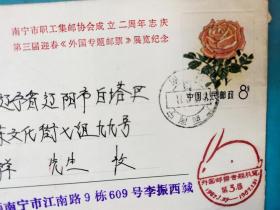 南宁市职工集邮协会成立二周年志庆
第三届迎春《外国专题邮票》展览纪念
中国人民邮政 8分
辽宁省辽阳市白塔区
文化街七组九九号
祥 先生 收
外国邮票专题展览
第3届
南宁市江南路9栋609号李振西缄